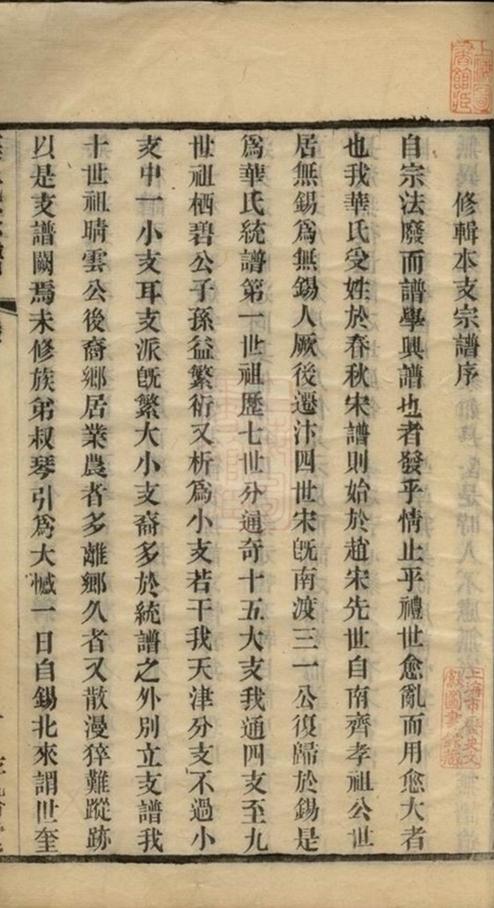 修輯本支宗譜序
自宗法廢而譜學興譜也者發乎情止乎禮世愈亂而用愈大者
也我華氏受姓於春秋宋譜則始於趙宋先世自南齊孝祖公世
居無錫爲無錫人厥後遷汴四世宋旣南渡三一公復歸於錫是
爲華氏統譜第一世祖歷七世分通奇十五大支我通四支至九
世祖栖碧公子孫益繁衍又析爲小支若干我天津分支不過小
支中一小支耳支派旣繁大小支裔多於統譜之外別立支譜我
十世祖晴雲公後裔鄉居業農者多離鄉久者又散漫猝難蹤跡
以是支譜闕焉未修族弟叔琴引爲大憾一日自錫北來謂世奎